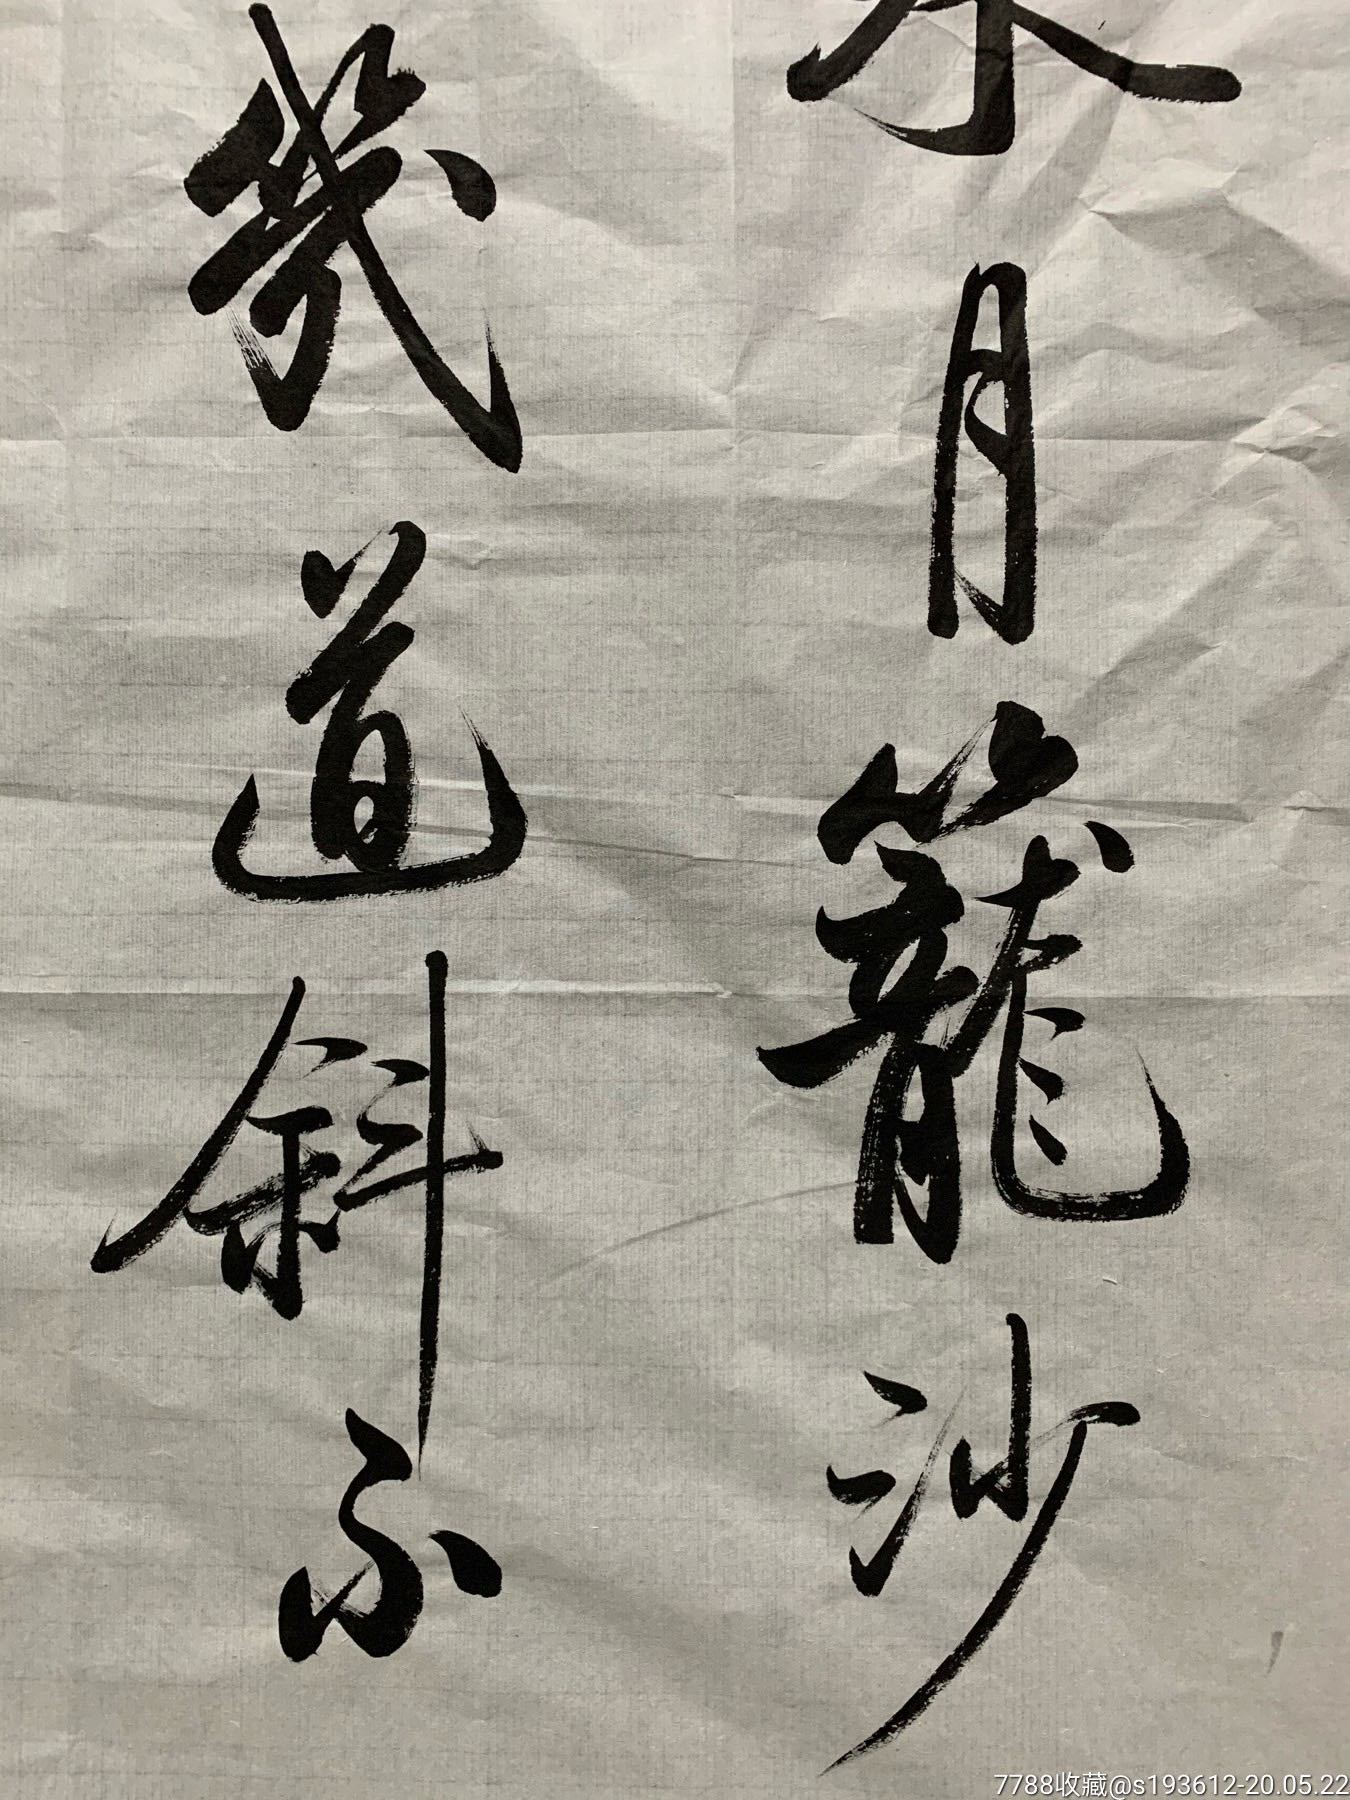 水月籠沙
幾道斜不
7788收藏@s193612-20.05.22